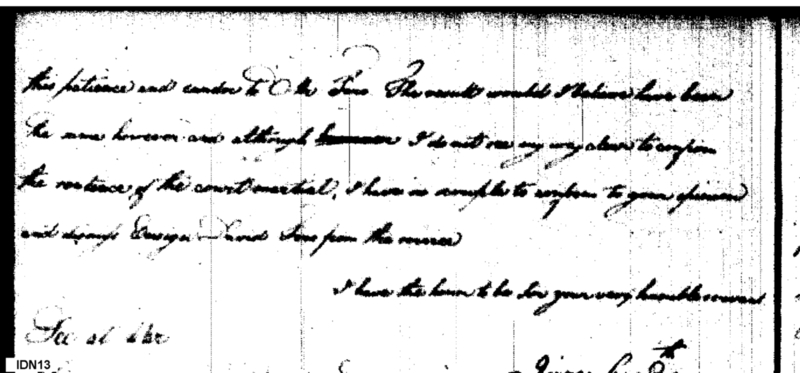 this patience and candor to the The result would I believe have been
the same however and although I do not see my way clear to confirm
the sentence of the court martial, I have no scruples to conform to your opinion
and dismiss Ensign David from the service
I have the honor to be Sir your very humble servant
Sec at War
IDN13